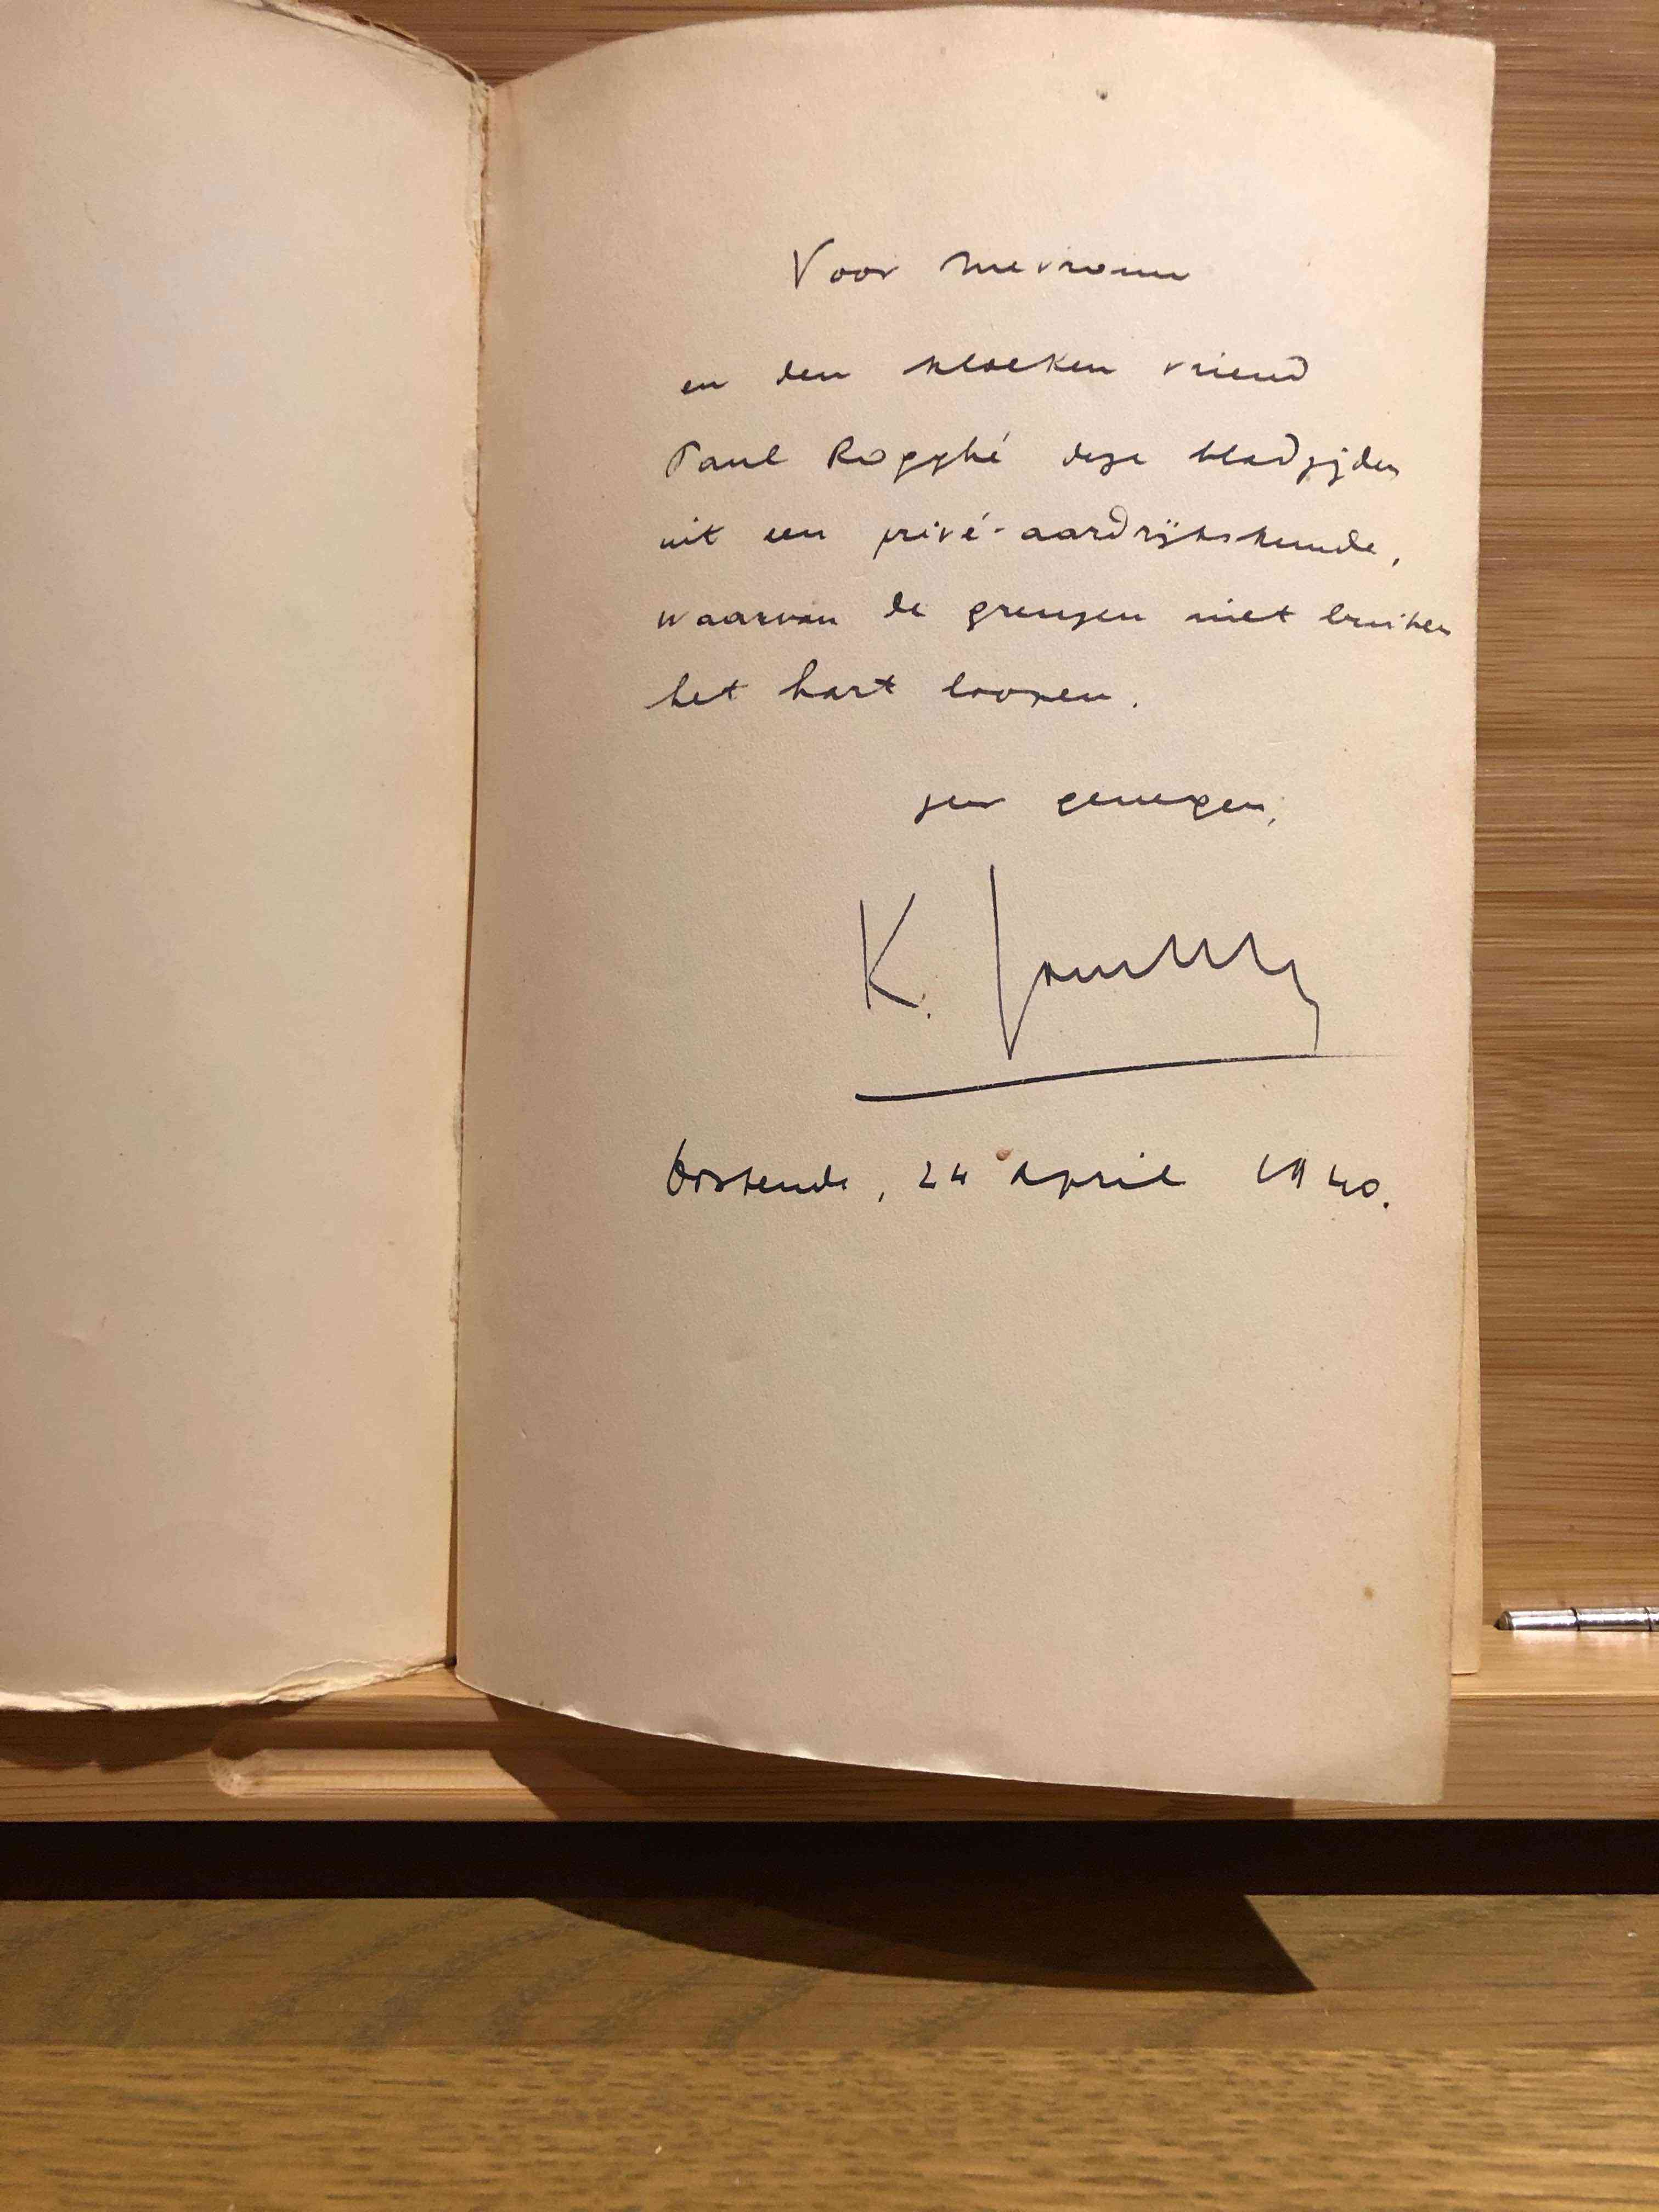 Voor mevrouw
en den kloeken vriend
Paul Rogghé deze bladzijden
uit een privé-aardrijkskunde,
waarvan de grenzen niet buiten
het hart loopen.
zeer genegen,
K. Jonckheere
Oostende, 24 april 1940.